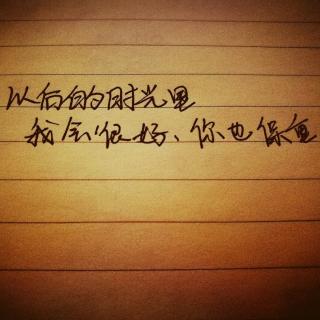 以后的时光里
我会很好、你也保重